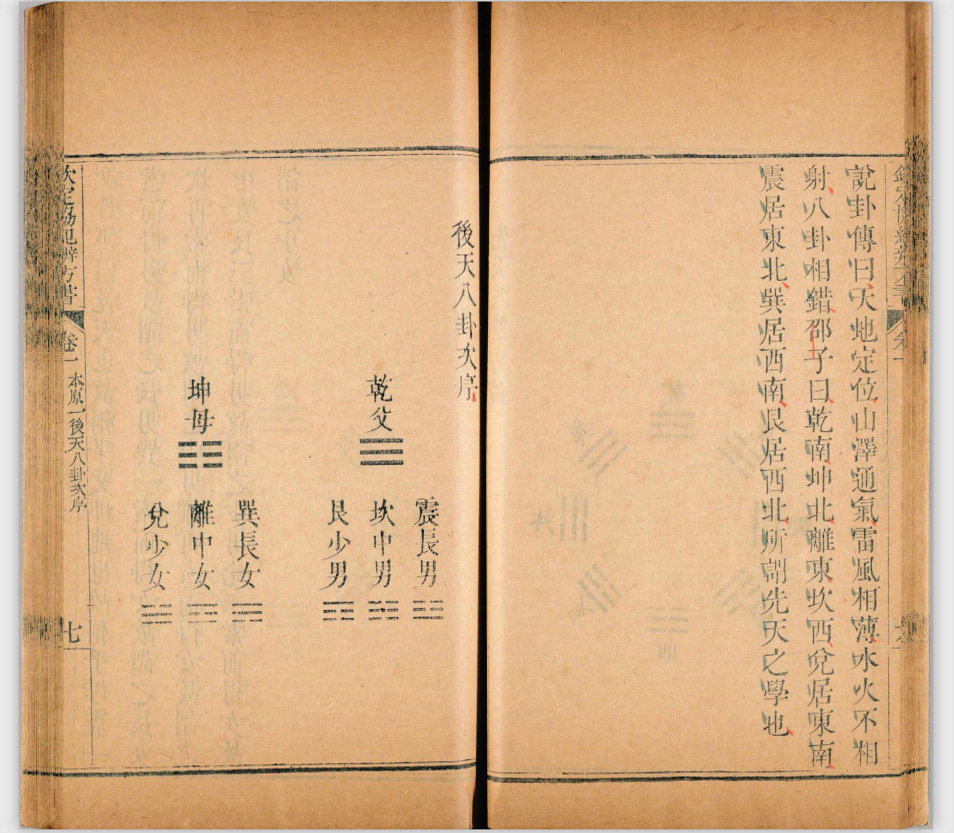 說卦傳曰天地定位山澤通氣雷風相薄水火不相
射八卦相錯邵子曰乾南坤北離東坎西兌居東南
震居東北巽居西南艮居西北所謂先天之學也
後天八卦次序
乾父
震長男
坎中男
艮少男
坤母
巽長女
離中女
兌少女
欽定協紀辨方書
卷一
本原一後天八卦次序
七